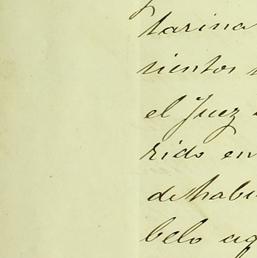 tarina
rientos
el Juez
rido en
de habi
belo aq